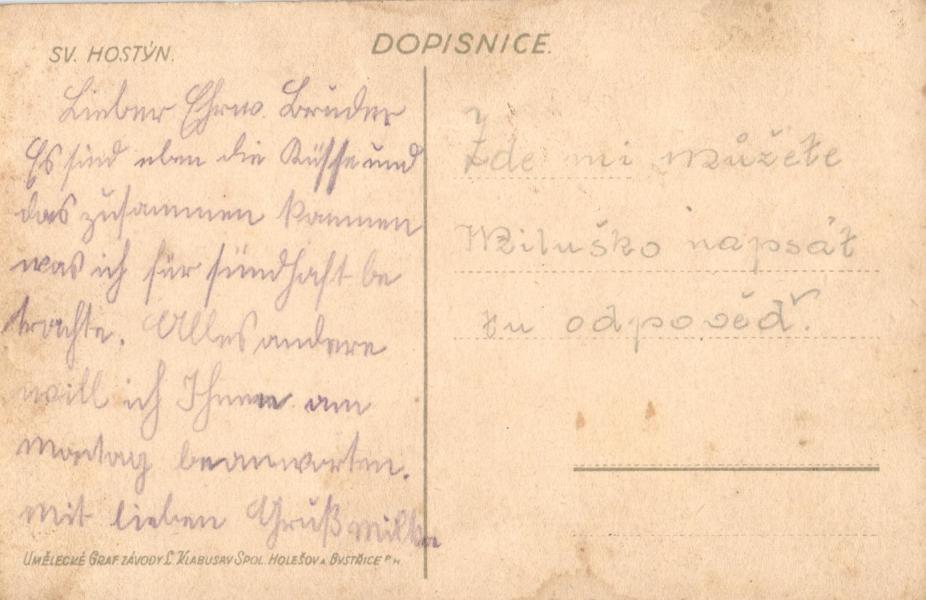 SV. HOSTÝN.
DOPISNICE.
Lieber Ehrw. Bruder
Es sind eben die Küsse und
das zusammen kommen
was ich für sündhaft be
trachte. Alles andere
will ich Ihnen am
montag beanworten.
mit lieben Gruß Milka
Zde mi můžete
Miluško napsát
tu odpověď.
UMĚLECKÉ GRAF. ZÁVODY L. KLABUSAY SPOL. HOLEŠOV A BYSTŘICE P. H.